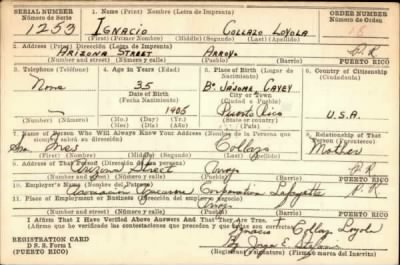 SERIAL NUMBER 1. Name (Print) Nombre (Letra de Imprenta) ORDER NUMBER
Número de Serie Número de Orden
1253 IGNACIO COLLAZO LOYOLA
(First) (Primero) (Middle) (Segundo) (Last) (Apellido)
2. Address (Print) Dirección (Letra de Imprenta)
ARIZONA STREET ARROYO P.R.
(Number and Street) (Número y Calle) (Town) (Pueblo) PUERTO RICO
3. Telephone (Teléfono) 4. Age in Years (Edad) 5. Place of Birth (Lugar de Nacimiento) 6. Country of Citizenship (Ciudadanía)
None 35 Bo. JAJOME, CAYEY
Date of Birth City or Town
(Fecha Nacimiento) (Ciudad o Pueblo)
1905 Puerto Rico U.S.A.
(Number) (Número) (Mo.) (Day) (Yr.) State or country
(Mes) (Día) (Año) (Estado o país)
7. Name of Person Who Will Always Know Your Address (Nombre de la Persona que siempre sabrá su dirección) 8. Relationship of That Person (Parentesco)
Ines Collazo Mother
(First) (Primero) (Middle) (Segundo) (Last) (Apellido)
9. Address of That Person (Dirección de esta persona)
Arizona Street Arroyo P.R.
(Number and Street) (Número y Calle) (Town) (Pueblo) PUERTO RICO
10. Employer's Name (Nombre del Patrono)
Corporation Lafayette P.R.
11. Place of Employment or Business (Dirección del empleo o negocio)
Arroyo
(Number and Street) (Número y Calle) (Town) (Pueblo) PUERTO RICO
I Affirm That I Have Verified Above Answers And That They Are True.
(Afirmo que he verificado las contestaciones que preceden y que todas son ciertas)
Ignacio Collazo Loyola
REGISTRATION CARD By
D. S. S. Form 1
(PUERTO RICO) (Registrant's signature) (Firma o marca del Inscrito)